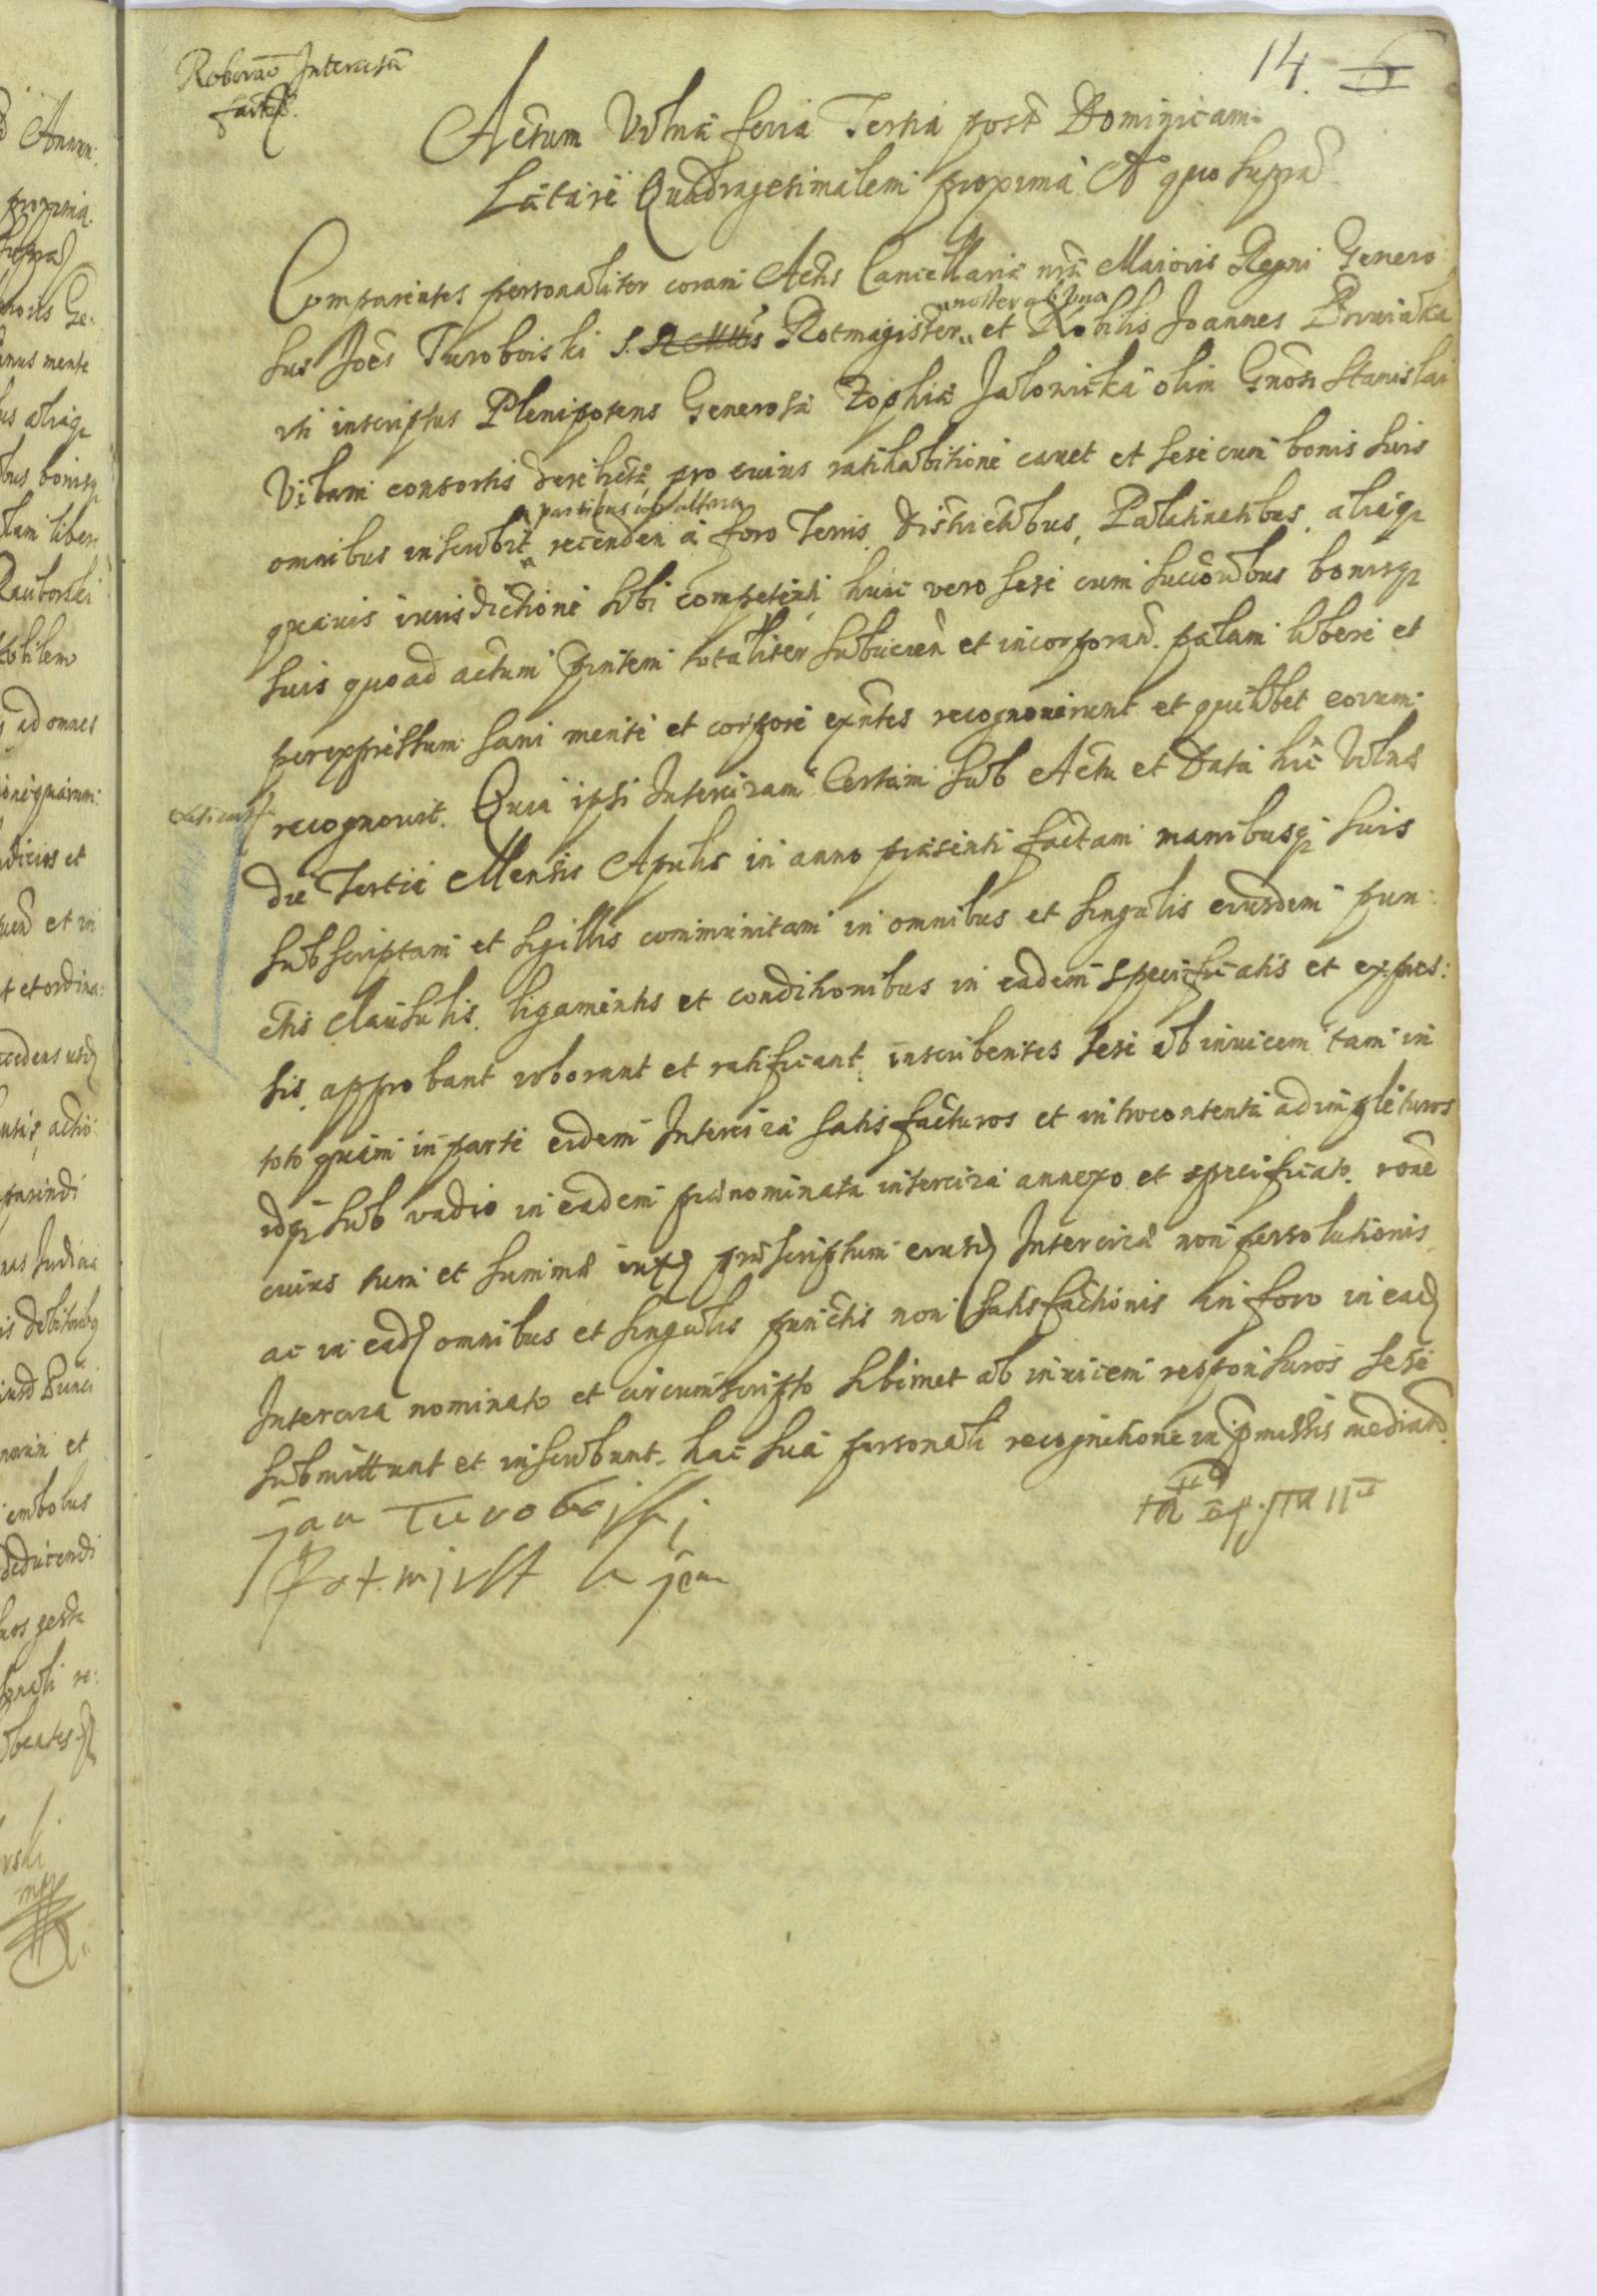 14. 6
Roborão Intercisæ
factæ.
Actum Vilnæ feria Tertia post Dominicam
Lætare Quadragesimalem proxima Aº quo supra
Comparentes personaliter coram Actis Cancellariæ nræ Maioris Regni Genero
sus Joēs Turoboiski S. R. Mttis Rotmagister noster ab una et Nobilis Joannes
uti inscriptus Plenipotens Generosæ Zophiæ Jalowicka olim Gnosi Stanislai
consortis derelictæ, pro cuius ratihabitione cauet et sese cum bonis suis
omnibus inscribit partibus ab altera recenden à foro Terris Districtibus, Palatinatibus, aliaq
quauis iurisdictione sibi competenti, huic vero sese cum succoribus bonisq
suis quoad actum pntem totaliter subiicien et incorporan. palam libere et
per expressum sani mente et corpore exntes recognouerunt et quilibet eorum
recognouit. Quia ipsi Intercizam Certam sub Actu et Data hic Vilnæ
die Tertia Mensis Aprilis in anno præsenti factam manibusq suis
subscriptam et sigillis communitam in omnibus et singulis eiusdem pun
ctis clausulis, ligamentis et conditionibus in eadem specificatis et expres:
sis, approbant roborant et ratificant, inscribentes sese ab inuicem tam in
toto quàm in parte eidem Intercizæ satisfacturos et introcontenta adimpleturos
idq sub vadio in eadem prænominata interciza annexo et specificato, rone
cuius tum et summæ iuxta præscriptum eiusd Intercizæ non persolutionis
ac in ead omnibus et singulis punctis non satisfactionis in foro in ead
Interciza nominato et circumscripto sibimet ab inuicem responsuros sese
submittunt et inscribunt. hac sua personali recognitione in pmissis mediant.
Jan Turoboiski
Rotmistr